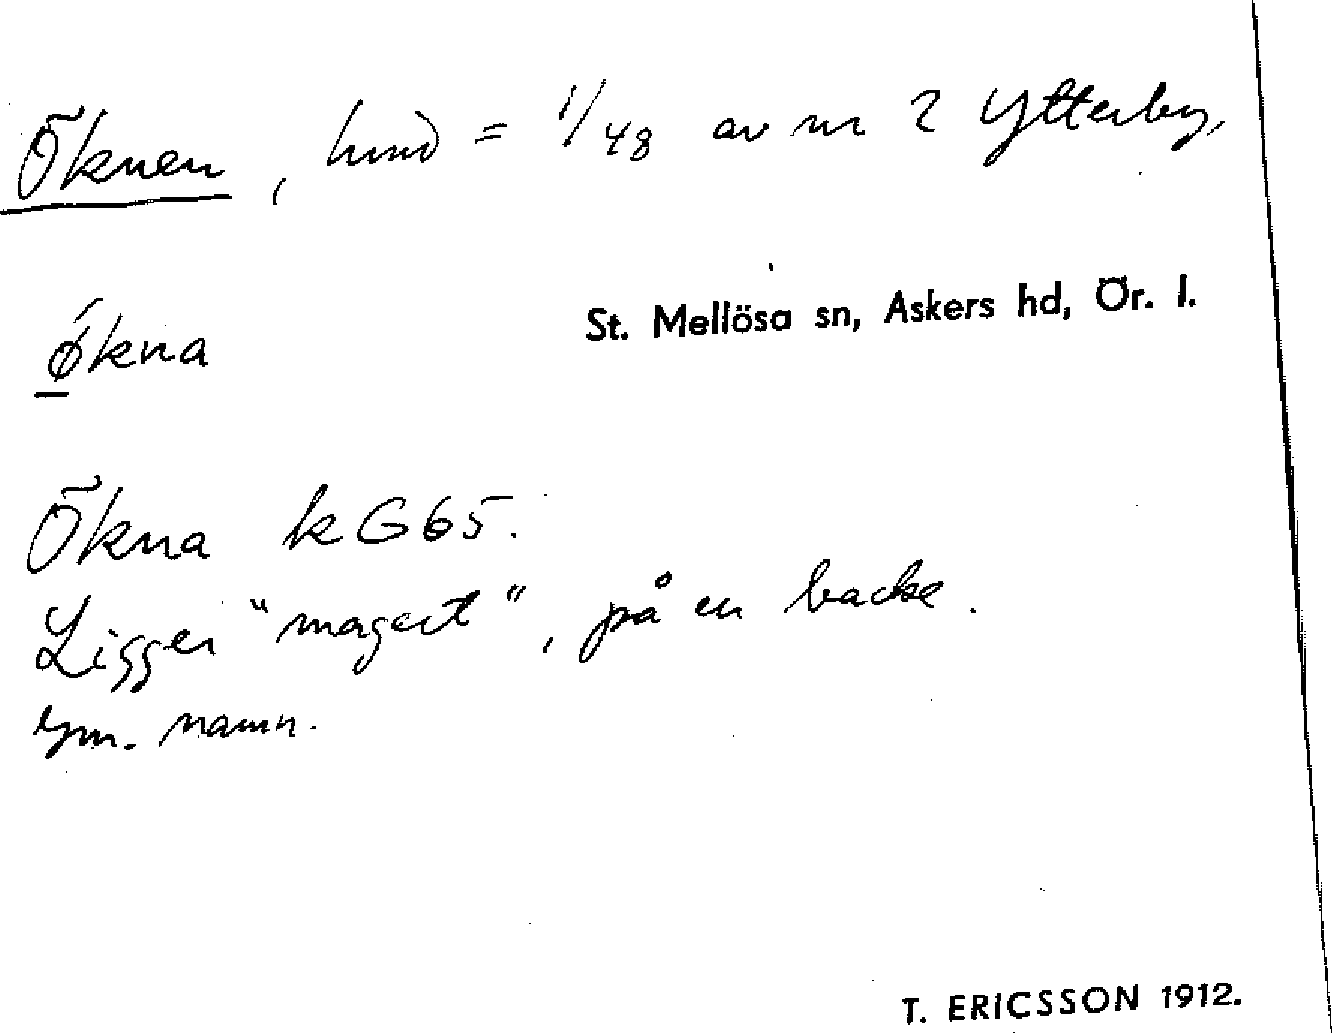 Öknen, lund = 1/48 av nr 2 Ytterby,
St. Mellösa sn, Askers hd, Ör. l.
økna
Ökna k G65.
Ligger "magert", på en backe.
namn.
T. ERICSSON 1912.